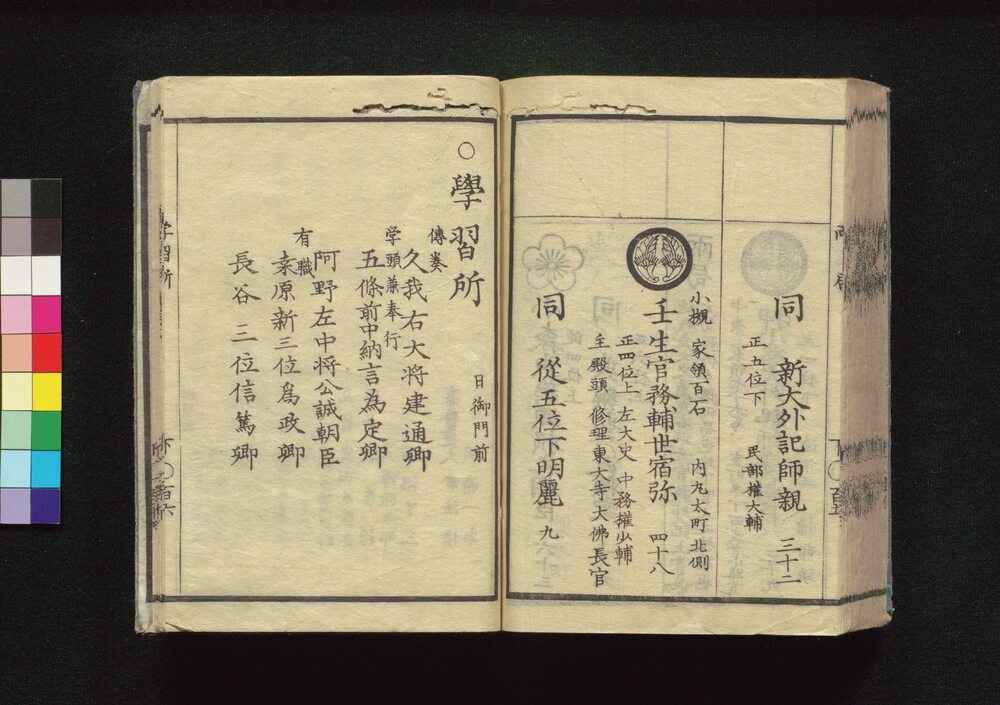 同　新大外記師親　三十二
正五位下　民部權大輔
小槻　家領百石　内丸太町北側
壬生官務輔世宿弥　四十八
正四位上　左大史　中務權少輔
主殿頭　修理東大寺大佛長官
同　從五位下明麗　九
○學習所
日御門前
傳奏
久我右大将建通卿
学頭兼奉行
五條前中納言為定卿
阿野左中将公誠朝臣
有職
桒原新三位爲政卿
長谷三位信篤卿
学習所